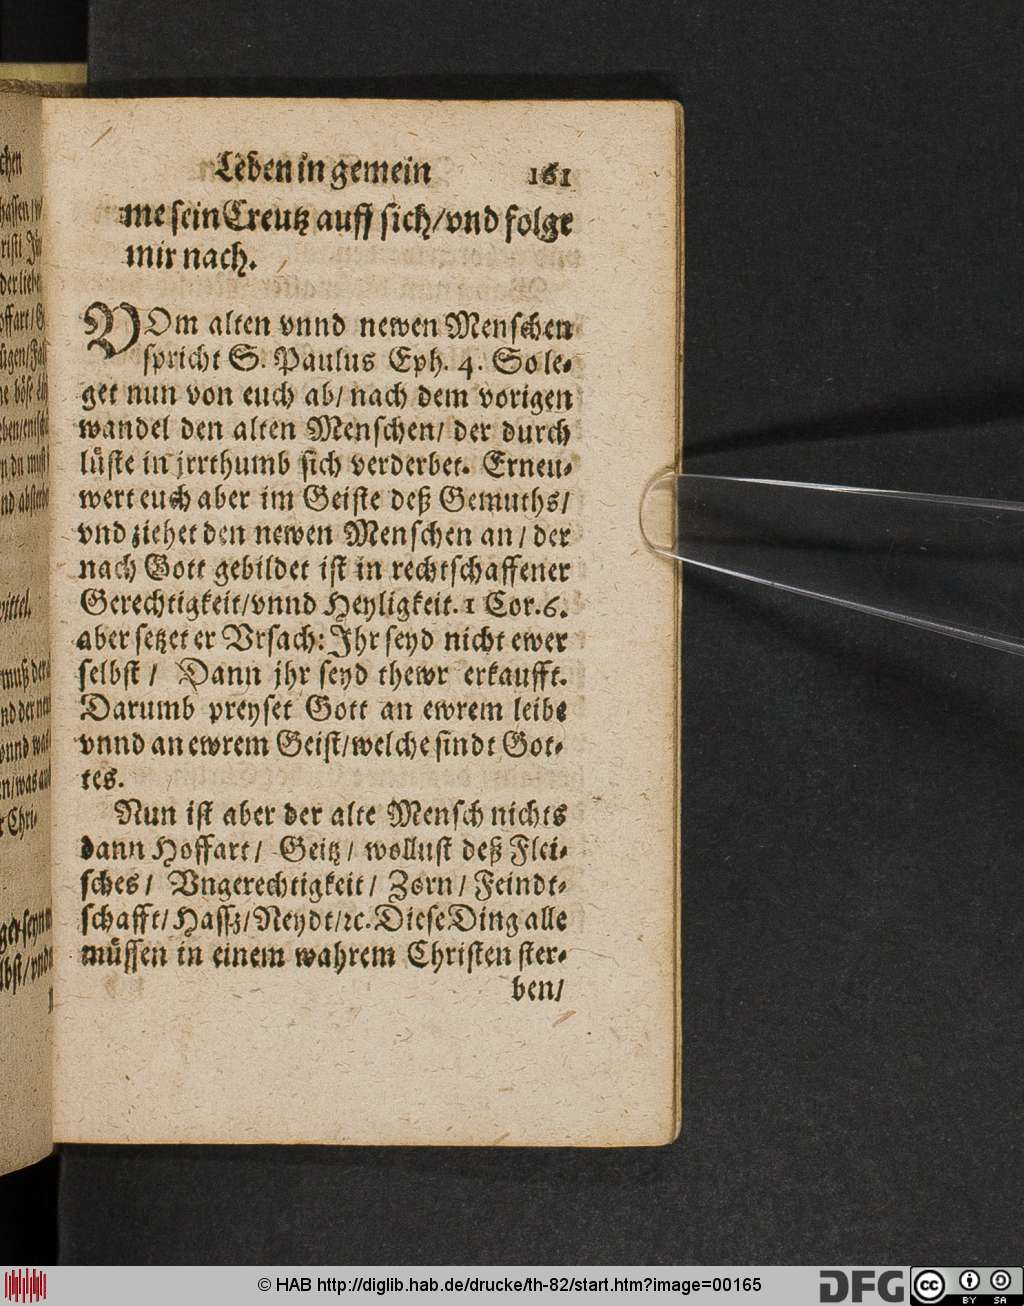 Leben in gemein 161
me sein Creutz auff sich/vnd folge
mir nach.
VOm alten vnnd newen Menschen
spricht S. Paulus Eph. 4. So le-
get nun von euch ab/ nach dem vorigen
wandel den alten Menschen/ der durch
lüste in jrrthumb sich verderbet. Erneu-
wert euch aber im Geiste deß Gemuths/
vnd ziehet den newen Menschen an/ der
nach Gott gebildet ist in rechtschaffener
Gerechtigkeit/vnnd Heyligkeit. 1 Cor. 6.
aber setzet er Vrsach: Jhr seyd nicht ewer
selbst/ Dann jhr seyd thewr erkaufft.
Darumb preyset Gott an ewrem leibe
vnnd an ewrem Geist/welche sindt Got-
tes.
Nun ist aber der alte Mensch nichts
dann Hoffart/ Geitz/ wollust deß Flei-
sches/ Vngerechtigkeit/ Zorn/ Feindt-
schafft/Hassz/Neydt/ꝛc. Diese Ding alle
müssen in einem wahrem Christen ster-
ben/
© HAB http://diglib.hab.de/drucke/th-82/start.htm?image=00165
DFG
cc BY SA